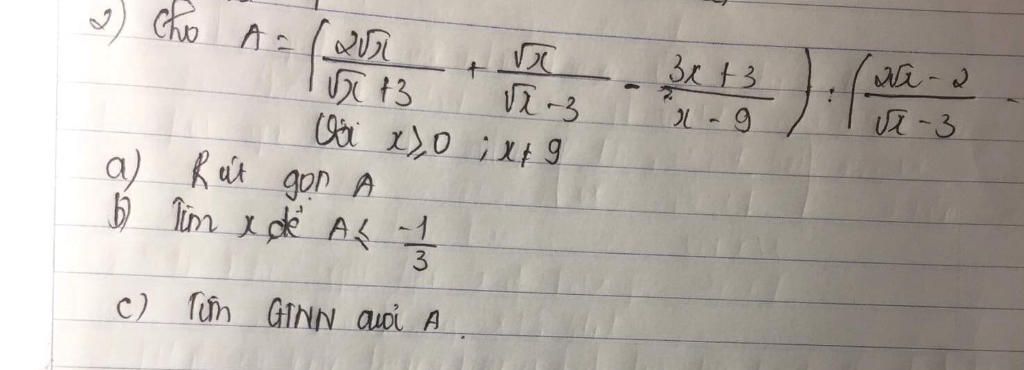 2) Cho A = ( 2√x / (√x + 3) + √x / (√x - 3) - (3x + 3) / (x - 9) ) : ( (2√x - 2) / (√x - 3) -
Với x ≥ 0 ; x ≠ 9
a) Rút gọn A
b) Tìm x để A ≤ -1/3
c) Tìm GTNN của A.